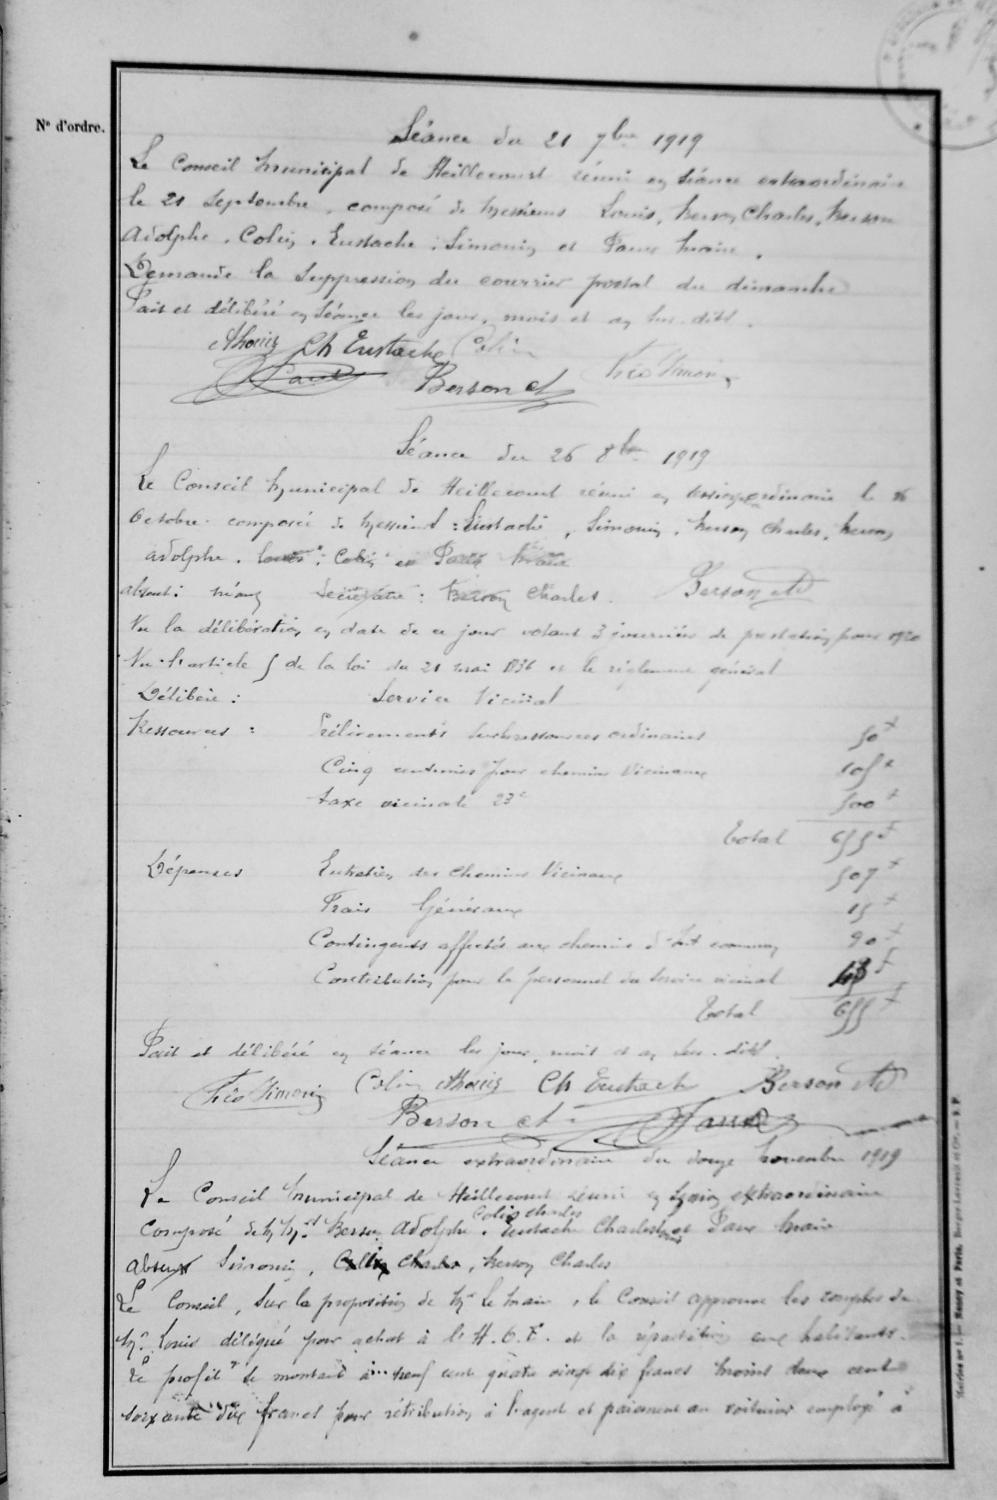 Nº d'ordre.
Séance du 21 7bre 1919
Le Conseil Municipal de Heillecourt réuni en séance extraordinaire
le 21 Septembre, composé de Messieurs Louis, Berson Charles, Berson
Adolphe, Colin, Eustache, Simonin et Faux Maire.
Demande la suppression du courrier postal du dimanche
Fait et délibéré en séance les jour, mois et an sus-dits.
Ch Eustache Colin
Berson A Théo Simonin
Séance du 26 8bre 1919
Le Conseil Municipal de Heillecourt réuni en session ordinaire le 26
Octobre composée de Messieurs : Eustache, Simonin, Berson Charles, Berson
Adolphe, Louis, Colin et Faux Maire
absent : néant Secrétaire : Berson Charles. Berson Ad
Vu la délibération en date de ce jour votant 3 journées de prestation pour 1920
Vu l'article 5 de la loi du 21 mai 1836 et le règlement général
Délibère : Service Vicinal
Ressources : Prélèvements sur ressources ordinaires 50 f
Cinq centimes pour chemins Vicinaux 105 f
taxe vicinale 23c 500 f
Total 655 f
Dépenses Entretien des chemins Vicinaux 507 f
Frais Généraux 15 f
Contingents affectés aux chemins d'Int commun 90 f
Contribution pour le personnel du service vicinal 43 f
Total 655 f
Fait et délibéré en séance les jour, mois et an sus-dits.
Théo Simonin Colin Ch Eustache Berson Ad
Berson A
Séance extraordinaire du douze Novembre 1919
Le Conseil Municipal de Heillecourt réuni en session extraordinaire
Colin Charles
Composé de MM. Berson Adolphe, Eustache Charles, et Faux Maire
absents Simonin, Colin Charles, Berson Charles
Le Conseil, sur la proposition de Mr le Maire, le Conseil approuve les comptes de
Mr Louis délégué pour achat à l'H.O.E. et la répartition aux habitants.
Le profit se montant à neuf cent quatre vingt dix francs moins deux cent
soixante dix francs pour rétribution à l'agent et paiement au voiturier employé à